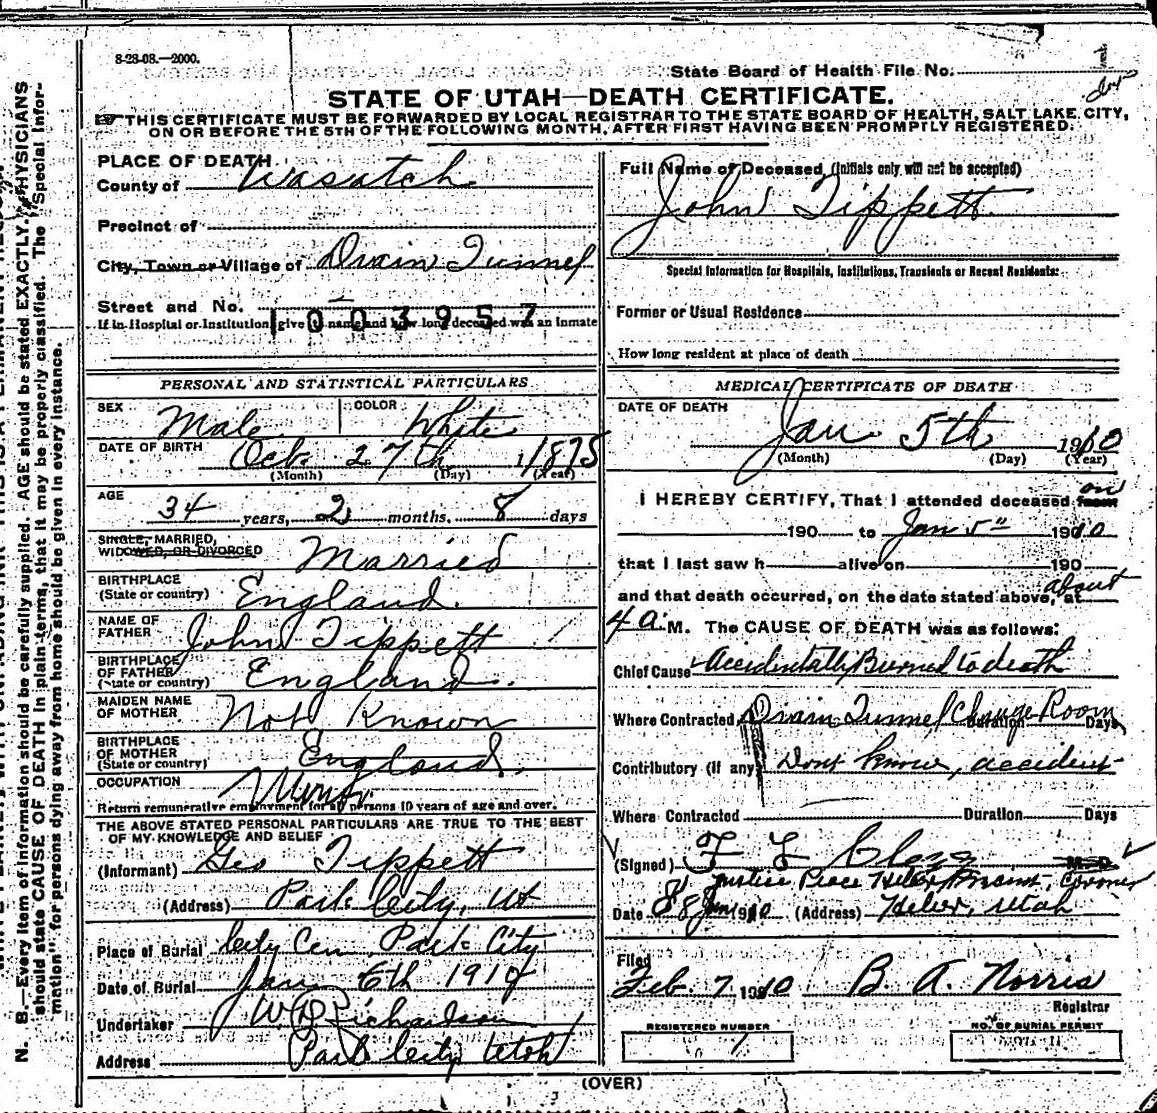 8-28-08.—2000.
State Board of Health File No. 1
STATE OF UTAH—DEATH CERTIFICATE.
THIS CERTIFICATE MUST BE FORWARDED BY LOCAL REGISTRAR TO THE STATE BOARD OF HEALTH, SALT LAKE CITY,
ON OR BEFORE THE 5TH OF THE FOLLOWING MONTH, AFTER FIRST HAVING BEEN PROMPTLY REGISTERED.
PLACE OF DEATH
County of Wasatch
Precinct of
City, Town or Village of Drain Tunnel
Street and No.
1003957
If in Hospital or Institution, give name and how long deceased was an inmate
PERSONAL AND STATISTICAL PARTICULARS
SEX Male COLOR White
DATE OF BIRTH Oct. 27th 1875
(Month) (Day) (Year)
AGE
34 years, 2 months, 8 days
SINGLE, MARRIED,
WIDOWED, OR DIVORCED Married
BIRTHPLACE
(State or country) England
NAME OF
FATHER John Tippett
BIRTHPLACE
OF FATHER
(State or country) England
MAIDEN NAME
OF MOTHER Not Known
BIRTHPLACE
OF MOTHER
(State or country) England
OCCUPATION Miner
Return remunerative employment for all persons 10 years of age and over.
THE ABOVE STATED PERSONAL PARTICULARS ARE TRUE TO THE BEST
OF MY KNOWLEDGE AND BELIEF
(Informant) Geo Tippett
(Address) Park City, Ut
Place of Burial City Cem. Park City
Date of Burial Jany 6th 1910
Undertaker Richardson
Address Park City Utah
Full Name of Deceased (Initials only will not be accepted)
John Tippett
Special Information for Hospitals, Institutions, Transients or Recent Residents:
Former or Usual Residence
How long resident at place of death
MEDICAL CERTIFICATE OF DEATH
DATE OF DEATH
Jan 5th 1910
(Month) (Day) (Year)
I HEREBY CERTIFY, That I attended deceased from on
190 to Jan 5" 1910
that I last saw h alive on 190
and that death occurred, on the date stated above, at about
4 a. M. The CAUSE OF DEATH was as follows:
Chief Cause Accidentally Burned to death
Where Contracted Drain Tunnel Change Room Duration Days
Contributory (if any) Dont know, accident
Where Contracted Duration Days
(Signed) F L M.D.
Justice Peace Heber Precinct, Coroner
Date 8 Jan 1910 (Address) Heber, Utah
Filed
Feb. 7 1910 B. A. Norris
Registrar
REGISTERED NUMBER
1
NO. OF BURIAL PERMIT
(OVER)
N. B.—Every item of information should be carefully supplied. AGE should be stated EXACTLY. PHYSICIANS
should state CAUSE OF DEATH in plain terms, that it may be properly classified. The "Special Infor-
mation" for persons dying away from home should be given in every instance.